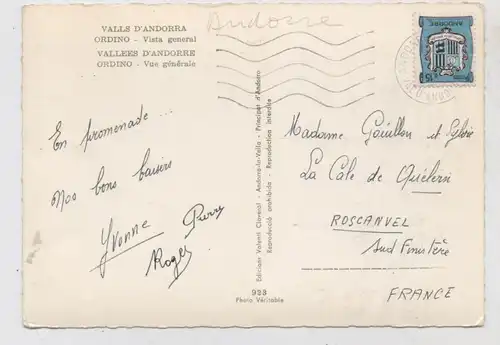 VALLS D'ANDORRA
ORDINO - Vista general
VALLEES D'ANDORRE
ORDINO - Vue générale
Andorre
ANDORRE
En promenade...
Nos bons baisers
Yvonne
Pierry
Roger
Edicions Valentí Claverol - Andorra-la-Vella - Principat d'Andorra
Reproducció prohibida - Reproduction interdite
993
Photo Véritable
Madame Gouillon et Sylvie
La Cale de Quélern
ROSCANVEL
Sud Finistère
FRANCE